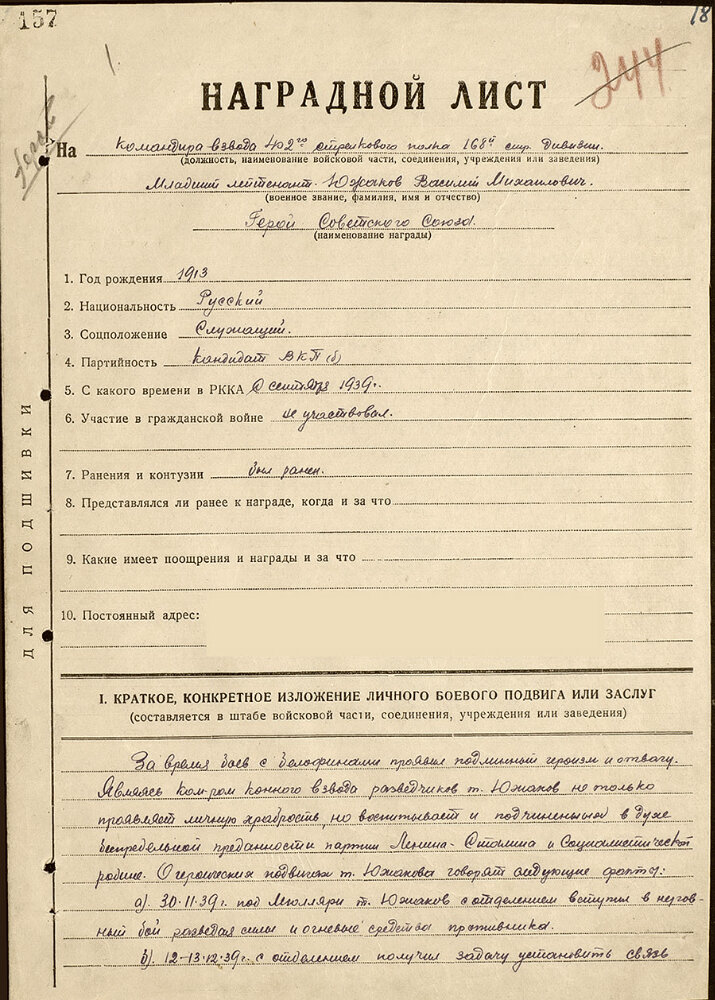 157
18
244
НАГРАДНОЙ ЛИСТ
На Командира взвода 402го стрелкового полка 168й стр. дивизии.
(должность, наименование войсковой части, соединения, учреждения или заведения)
Младший лейтенант Южаков Василий Михайлович.
(военное звание, фамилия, имя и отчество)
Герой Советского Союза
(наименование награды)
1. Год рождения 1913
2. Национальность Русский
3. Соцположение Служащий.
4. Партийность Кандидат ВКП(б)
5. С какого времени в РККА С сентября 1939г.
6. Участие в гражданской войне не участвовал.
7. Ранения и контузии был ранен.
8. Представлялся ли ранее к награде, когда и за что
9. Какие имеет поощрения и награды и за что
10. Постоянный адрес:
ДЛЯ ПОДШИВКИ
I. КРАТКОЕ, КОНКРЕТНОЕ ИЗЛОЖЕНИЕ ЛИЧНОГО БОЕВОГО ПОДВИГА ИЛИ ЗАСЛУГ
(составляется в штабе войсковой части, соединения, учреждения или заведения)
За время боев с белофинами проявил подлинный героизм и отвагу.
Являясь ком-ром конного взвода разведчиков т. Южаков не только
проявляет личную храбрость, но воспитывает и подчиненных в духе
беспредельной преданности партии Ленина-Сталина и Социалистической
родине. О героических подвигах т. Южакова говорят следующие факты:
а). 30.11.39г. под т. Южаков с отделением вступил в нерав-
ный бой разведал силы и огневые средства противника.
б). 12-13.12.39г. с отделением получил задачу установить связь